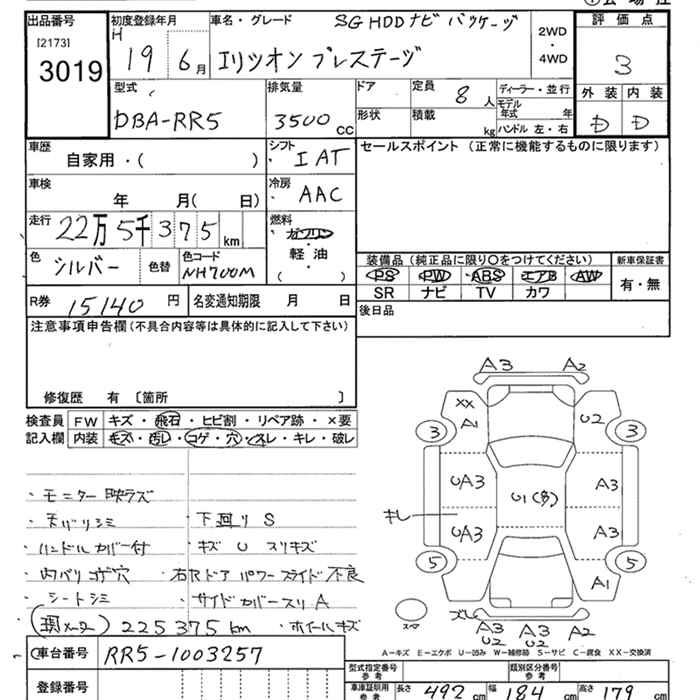 出品番号 初度登録年月 車名・グレード SG HDDナビパッケージ 2WD・4WD 評価点
[2173] H
3019 19 6月 エリシオン プレステージ 3
型式 排気量 ドア 定員 8人 ディーラー・並行 外装 内装
DBA-RR5 3500cc 形状 積載 kg モデル年式 年 D D
ハンドル 左・右
車歴 自家用・( ) シフト・IAT セールスポイント (正常に機能するものに限ります)
車検 年 月( 日) 冷房・AAC
走行 22万5千375km 燃料・ガソリン・軽油・( )
色 シルバー 色替 色コード NH700M
装備品 (純正品に限り○をつけてください) 新車保証書
PS PW ABS エアB AW 有・無
SR ナビ TV カワ
R券 15140円 名変通知期限 月 日 後日品
注意事項申告欄(不具合内容等は具体的に記入して下さい)
修復歴 有 〔箇所 〕
検査員 FW キズ・飛石・ヒビ割・リペア跡・×要
記入欄 内装 キズ・汚レ・コゲ・穴・スレ・キレ・破レ
・モニター映ラズ
・天バリシミ ・下回りS
・ハンドルカバー付 ・キズ U スリキズ
・内バリコゲ穴 ・右Rドア パワースライド不良
・シートシミ ・サイドカバースリA
(関メーター) 225375km ・ホイールキズ
A3 A2
XX A1 U2
3 3
UA3 U1(多) A3
キレ
UA3 A3
5 5
A1
スペア ズレ A3 U2 A3 U2 A2
A=キズ E=エクボ U=凹み W=補修跡 S=サビ C=腐食 XX=交換済
車台番号 RR5-1003257
登録番号
型式指定番号 参考 類別区分番号 参考
車庫証明用 参考 長さ 492cm 幅 184cm 高さ 179cm